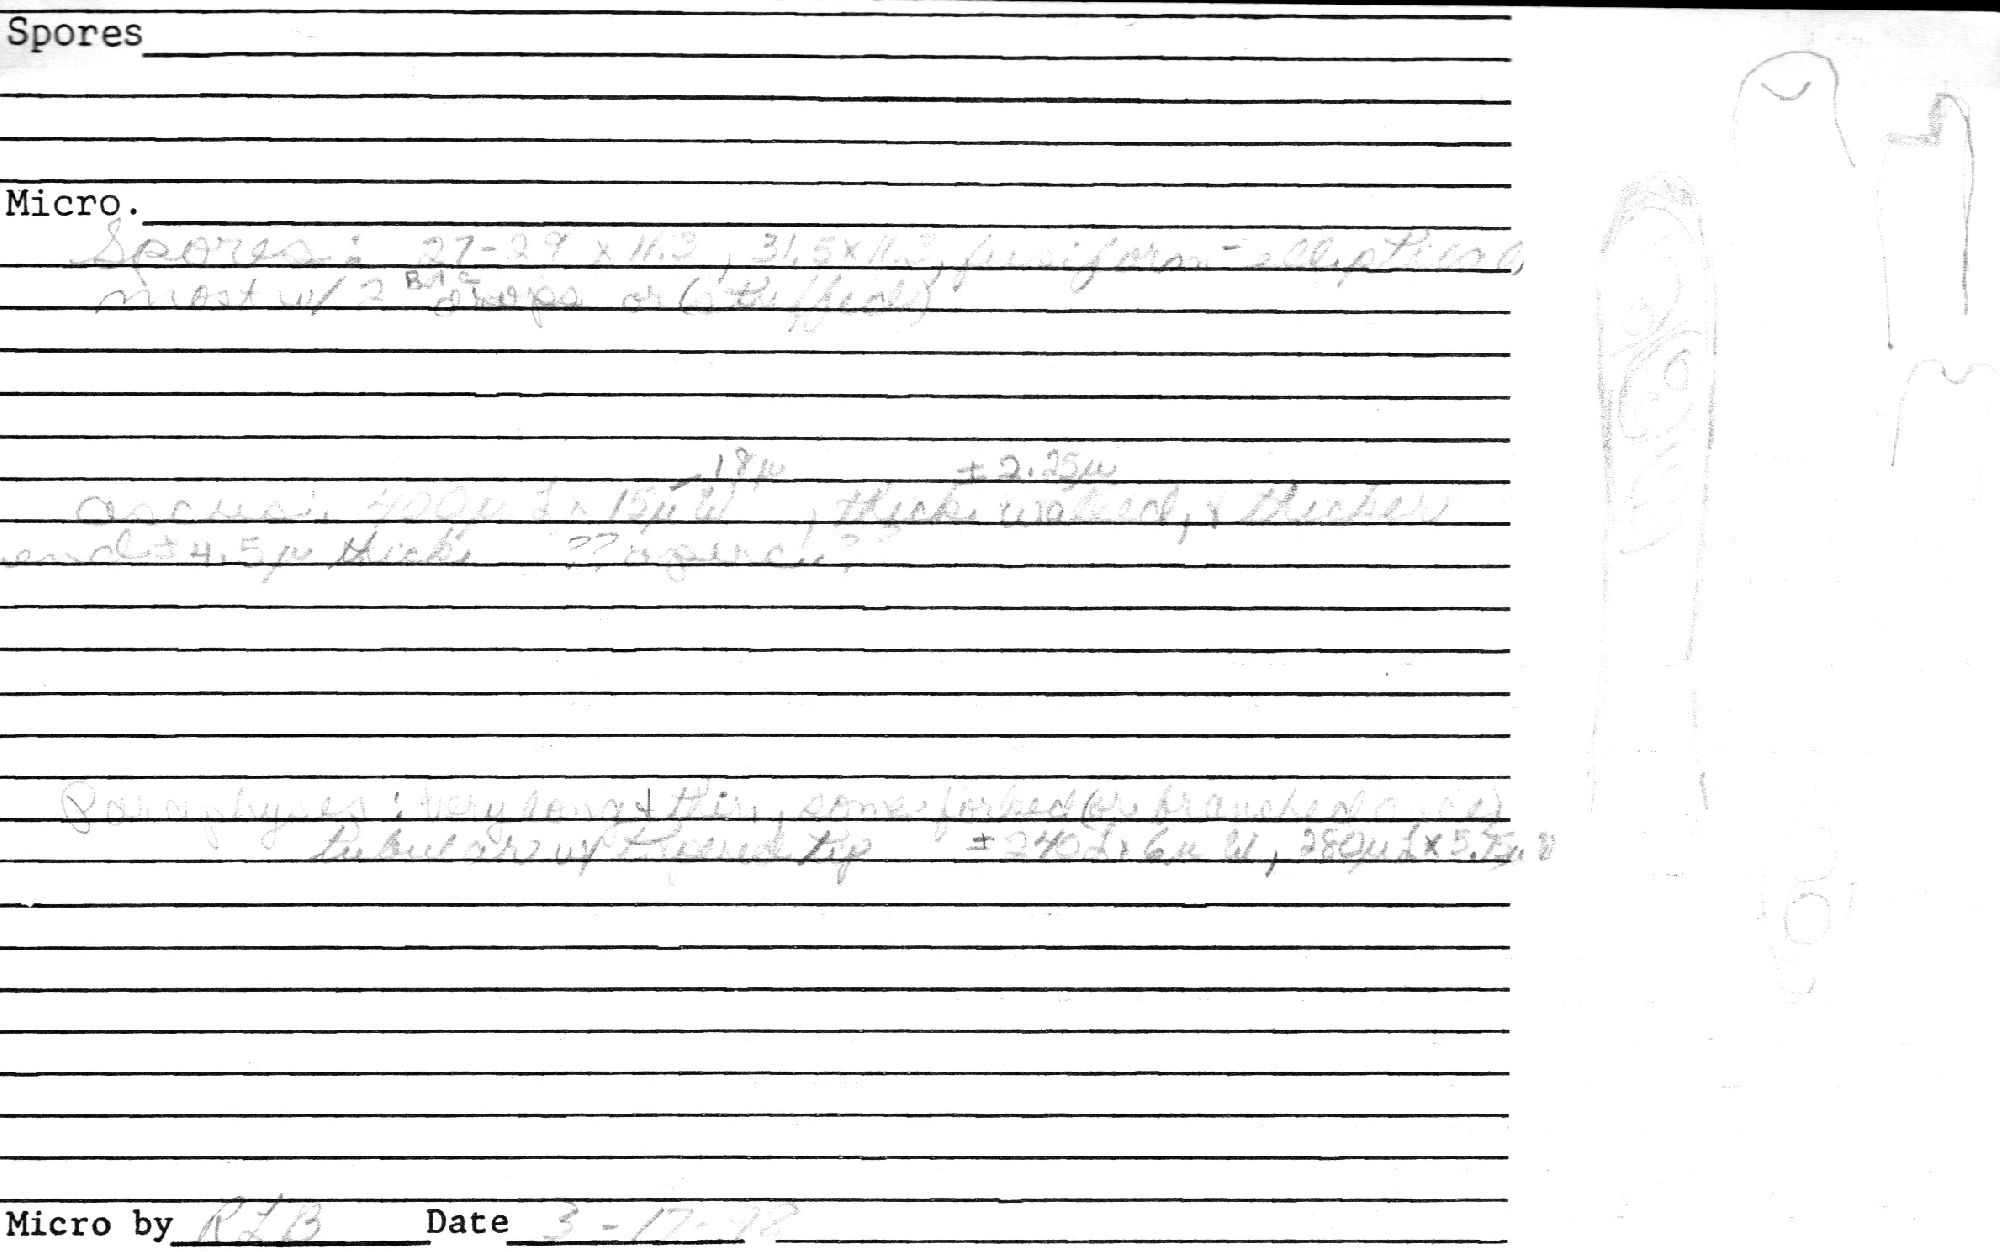 Spores
Micro.
Spores: 27-29 x 11.3, 31.5 x 11.3, fusiform-elliptical
most w/ 2 BIG drops or
-18µ ± 2.25µ
ascus: 400µ L x 15µ W, thick walled, & thicker
end ± 4.5µ thick ??
Paraphyses: very long & thin, some forked (or branched
tubular w/ tip ± 240 L x 6µ W, 280µ L x 5.5µ
Micro by RLB Date 3-17-98